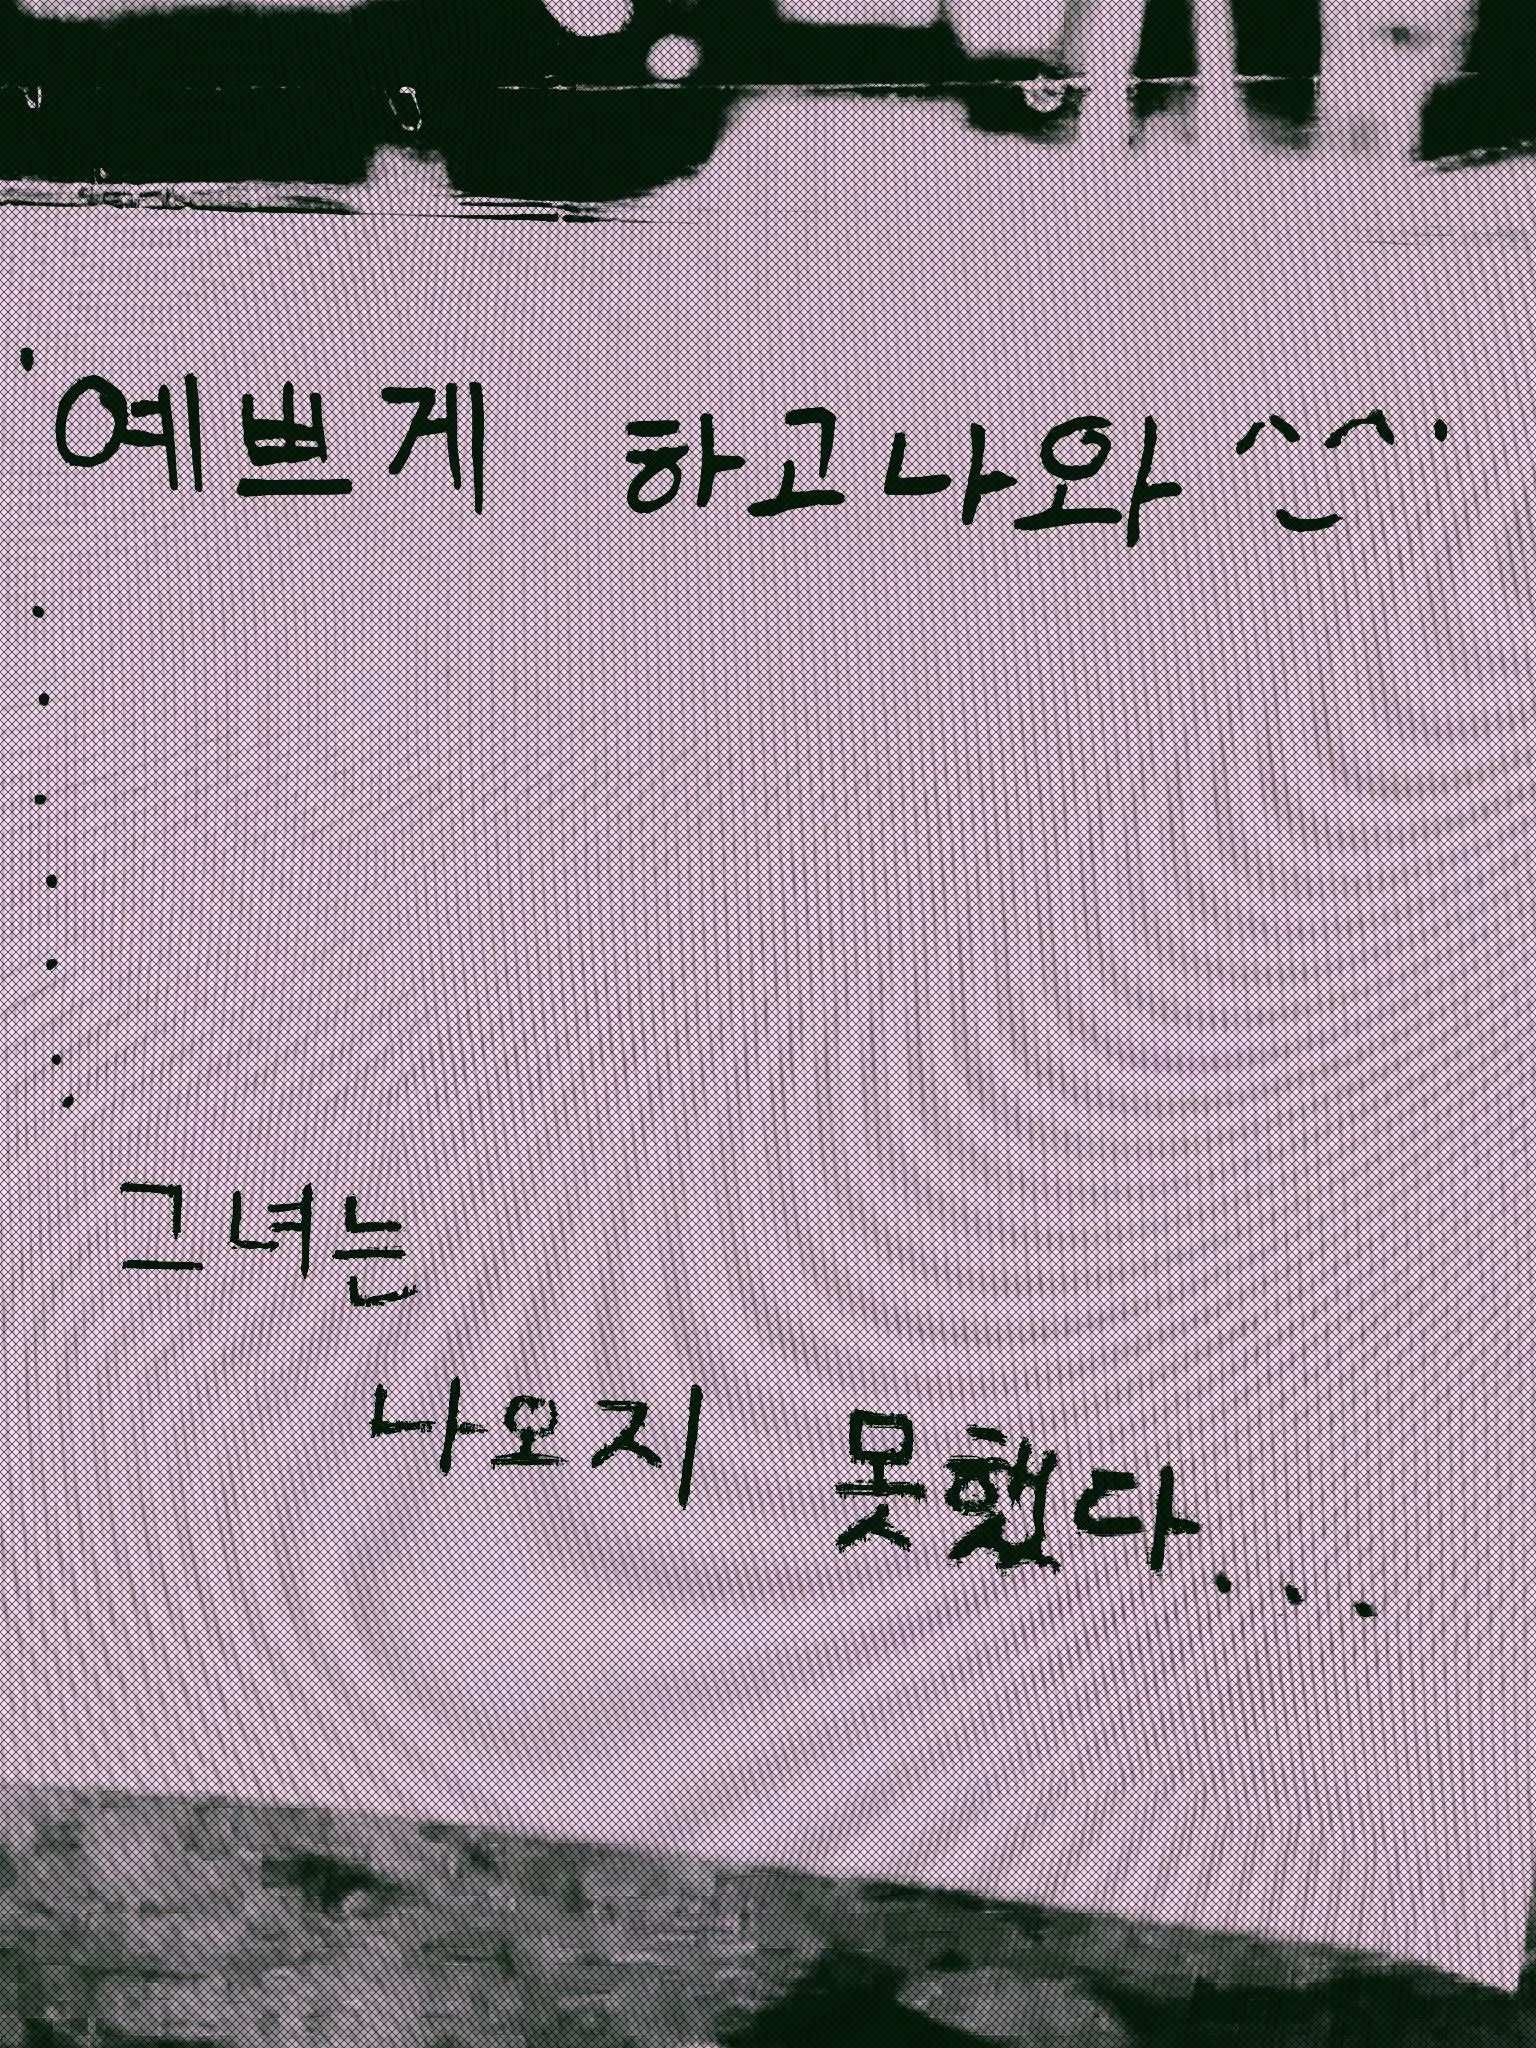 '예쁘게 하고나와 ^^'
.
.
.
.
.
.
.
그녀는
나오지 못했다...